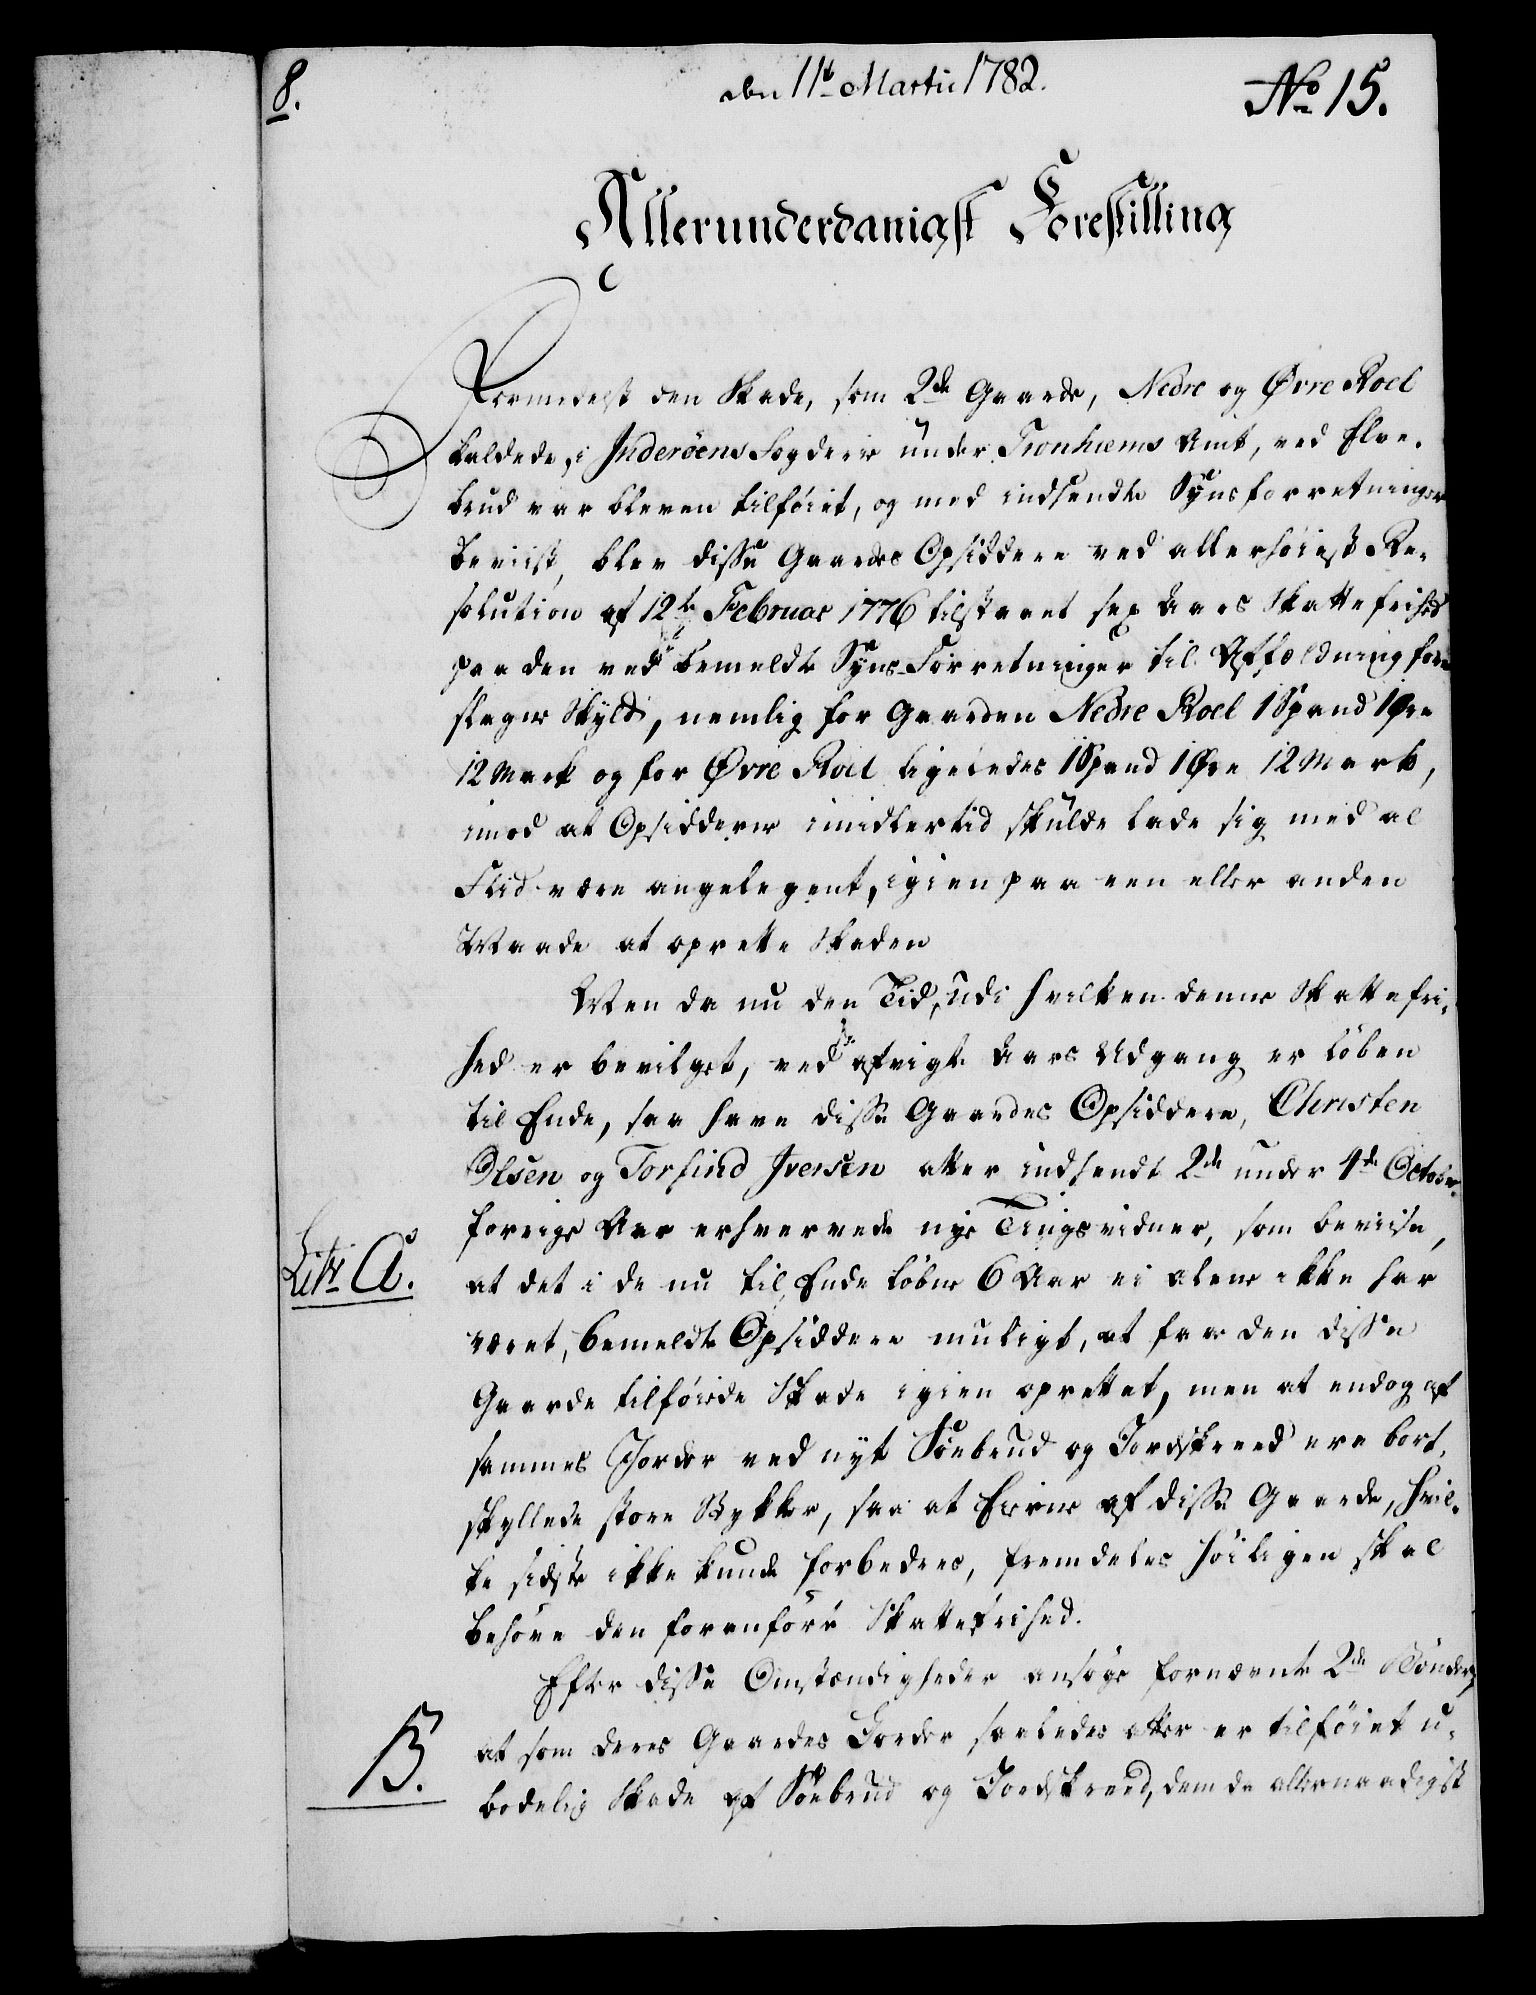 8.
den 11t Martii 1782.
No 15.
Allerunderdanigst Forestilling
Formedelst den Skade, som 2de Gaarde, Nedre og Øvre Roel
kaldede, i Inderöens Fogderie under Tronhiems Amt, ved Elve-
brud var bleven tilföiet, og med indsendte Synsforretninger
beviist, blev disse Gaardes Opsiddere ved allerhöieste Re-
solution af 12te Februar 1776 tilstaaet sex Aars Skattefrihed
paa den ved bemeldte Syns-Forretninger til Affældning fore-
slagne Skyld, nemlig for Gaarden Nedre Roel 1 Spand 1 Øre
12 Mark og for Øvre Roel ligeledes 1 Spand 1 Øre 12 Mark,
imod at Opsidderne imidlertid skulde lade sig med al
Flid være angelegent, igien paa een eller anden
Maade at oprette Skaden
Men da nu den Tid, udi hvilken denne Skattefri-
hed er bevilget, ved afvigte Aars Udgang er löben
til Ende, saa have disse Gaardes Opsiddere, Christen
Olsen og Torfind Iversen atter indsendt 2de under 4de October
forrige Aar erhvervede nye Tingsvidner, som beviise,
Litr. A.
at det i de nu til Ende löbne 6 Aar ei alene ikke har
været, bemeldte Opsiddere muligt, at faae den disse
Gaarde tilföiede Skade igien oprettet, men at endog af
sammes Jorder ved nyt Söebrud og Jordskreed ere bort-
skyllede store Stykker, saa at Eierne af disse Gaarde, hvil-
ke sidste ikke kunde forbedres, fremdeles höiligen skal
behöve den forenförte Skattefrihed.
Efter disse Omstændigheder ansöge fornævnte 2de Bönder,
B.
at som deres Gaardes Jorder saaledes atter er tilföiet u-
bodelig Skade af Söebrud og Jordskreed, dem da allernaadigst